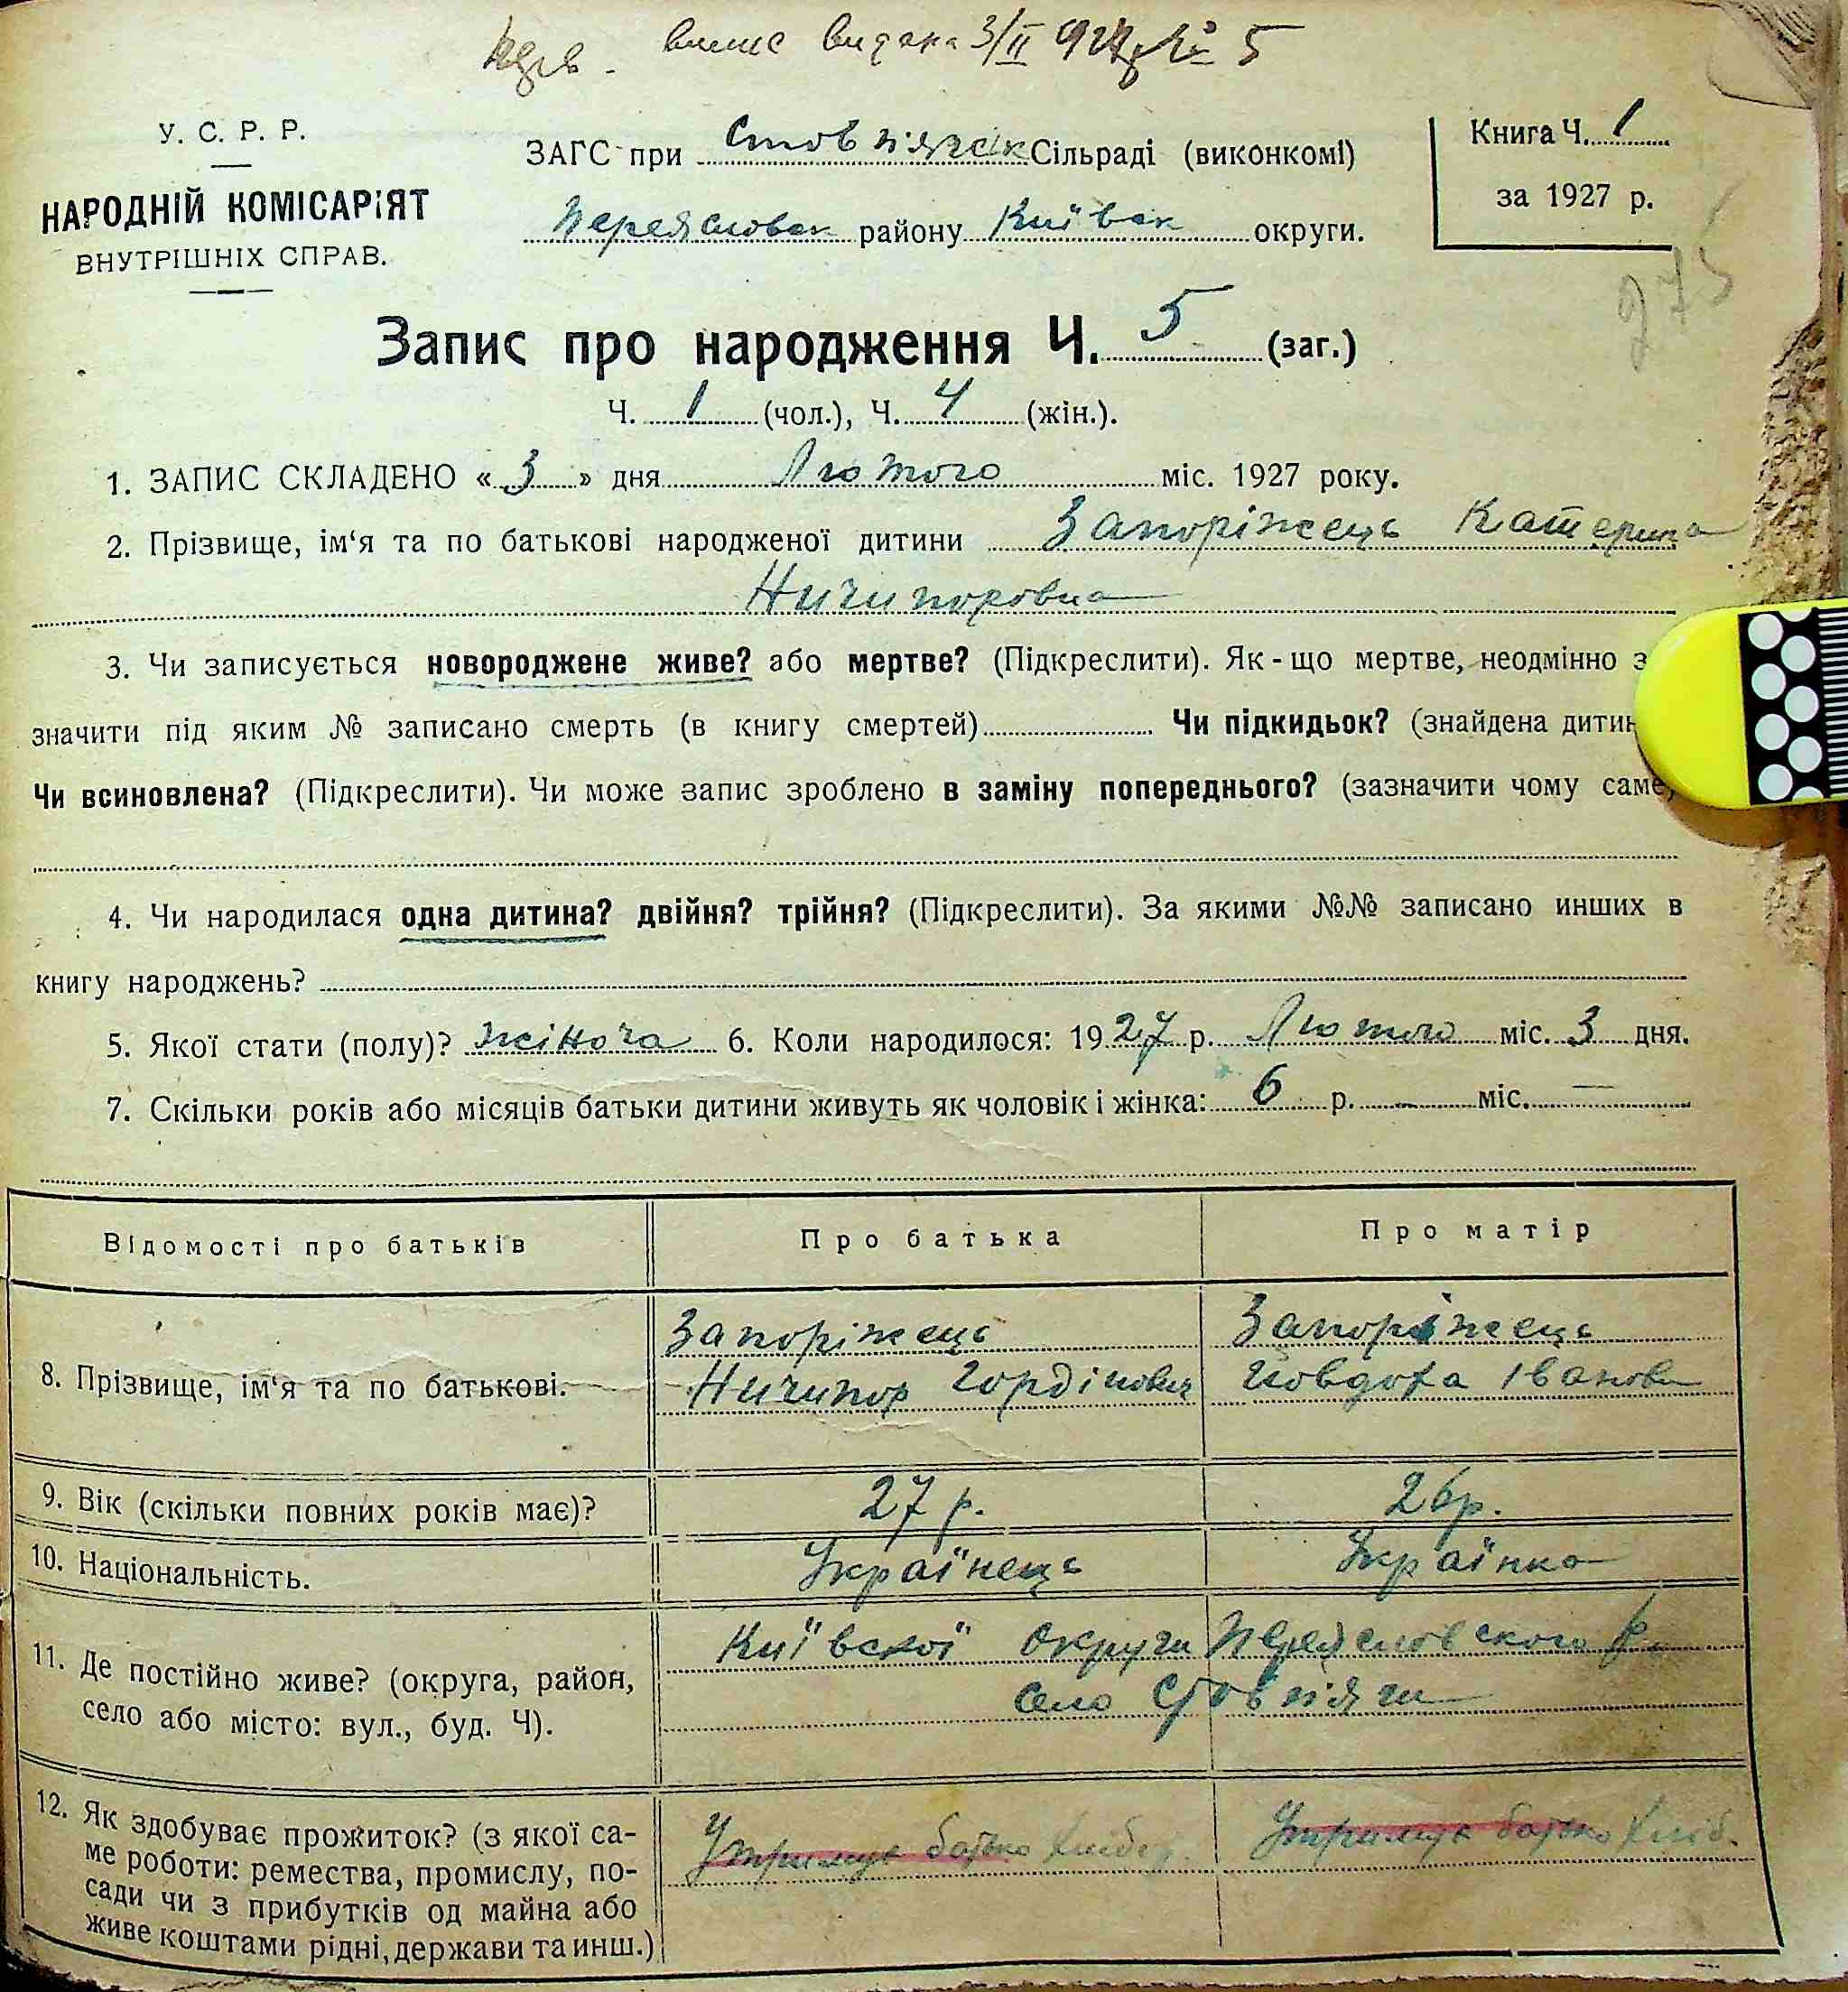 випис видана 3/II 927 р № 5
У. С. Р. Р.
НАРОДНІЙ КОМІСАРІЯТ
ВНУТРІШНІХ СПРАВ.
ЗАГС при Стовп'яжск Сільраді (виконкомі)
Переяславск району Київск округи.
Книга Ч. 1
за 1927 р.
275
Запис про народження Ч. 5 (заг.)
Ч. 1 (чол.), Ч. 4 (жін.).
1. ЗАПИС СКЛАДЕНО « 3 » дня Лютого міс. 1927 року.
2. Прізвище, ім'я та по батькові народженої дитини Запоріжець Катерина
Ничипоровна
3. Чи записується новороджене живе? або мертве? (Підкреслити). Як-що мертве, неодмінно з
значити під яким № записано смерть (в книгу смертей) Чи підкидьок? (знайдена дитин
Чи всиновлена? (Підкреслити). Чи може запис зроблено в заміну попереднього? (зазначити чому саме,
4. Чи народилася одна дитина? двійня? трійня? (Підкреслити). За якими №№ записано инших в
книгу народжень?
5. Якої стати (полу)? жіноча 6. Коли народилося: 1927 р. Лютого міс. 3 дня.
7. Скільки років або місяців батьки дитини живуть як чоловік і жінка: 6 р. — міс. —
Відомості про батьків Про батька Про матір
8. Прізвище, ім'я та по батькові.
Запоріжець
Ничипор Гордінович
Запоріжець
Иовдоха Іванова
9. Вік (скільки повних років має)? 27 р. 26 р.
10. Національність. Українець Українка
11. Де постійно живе? (округа, район,
село або місто: вул., буд. Ч).
Київської округи Переяславского р.
село Стовп'яги
12. Як здобуває прожиток? (з якої са-
ме роботи: ремества, промислу, по-
сади чи з прибутків од майна або
живе коштами рідні, держави та инш.)
Утримує батько Хлібор.
Утримує батько Хліб.